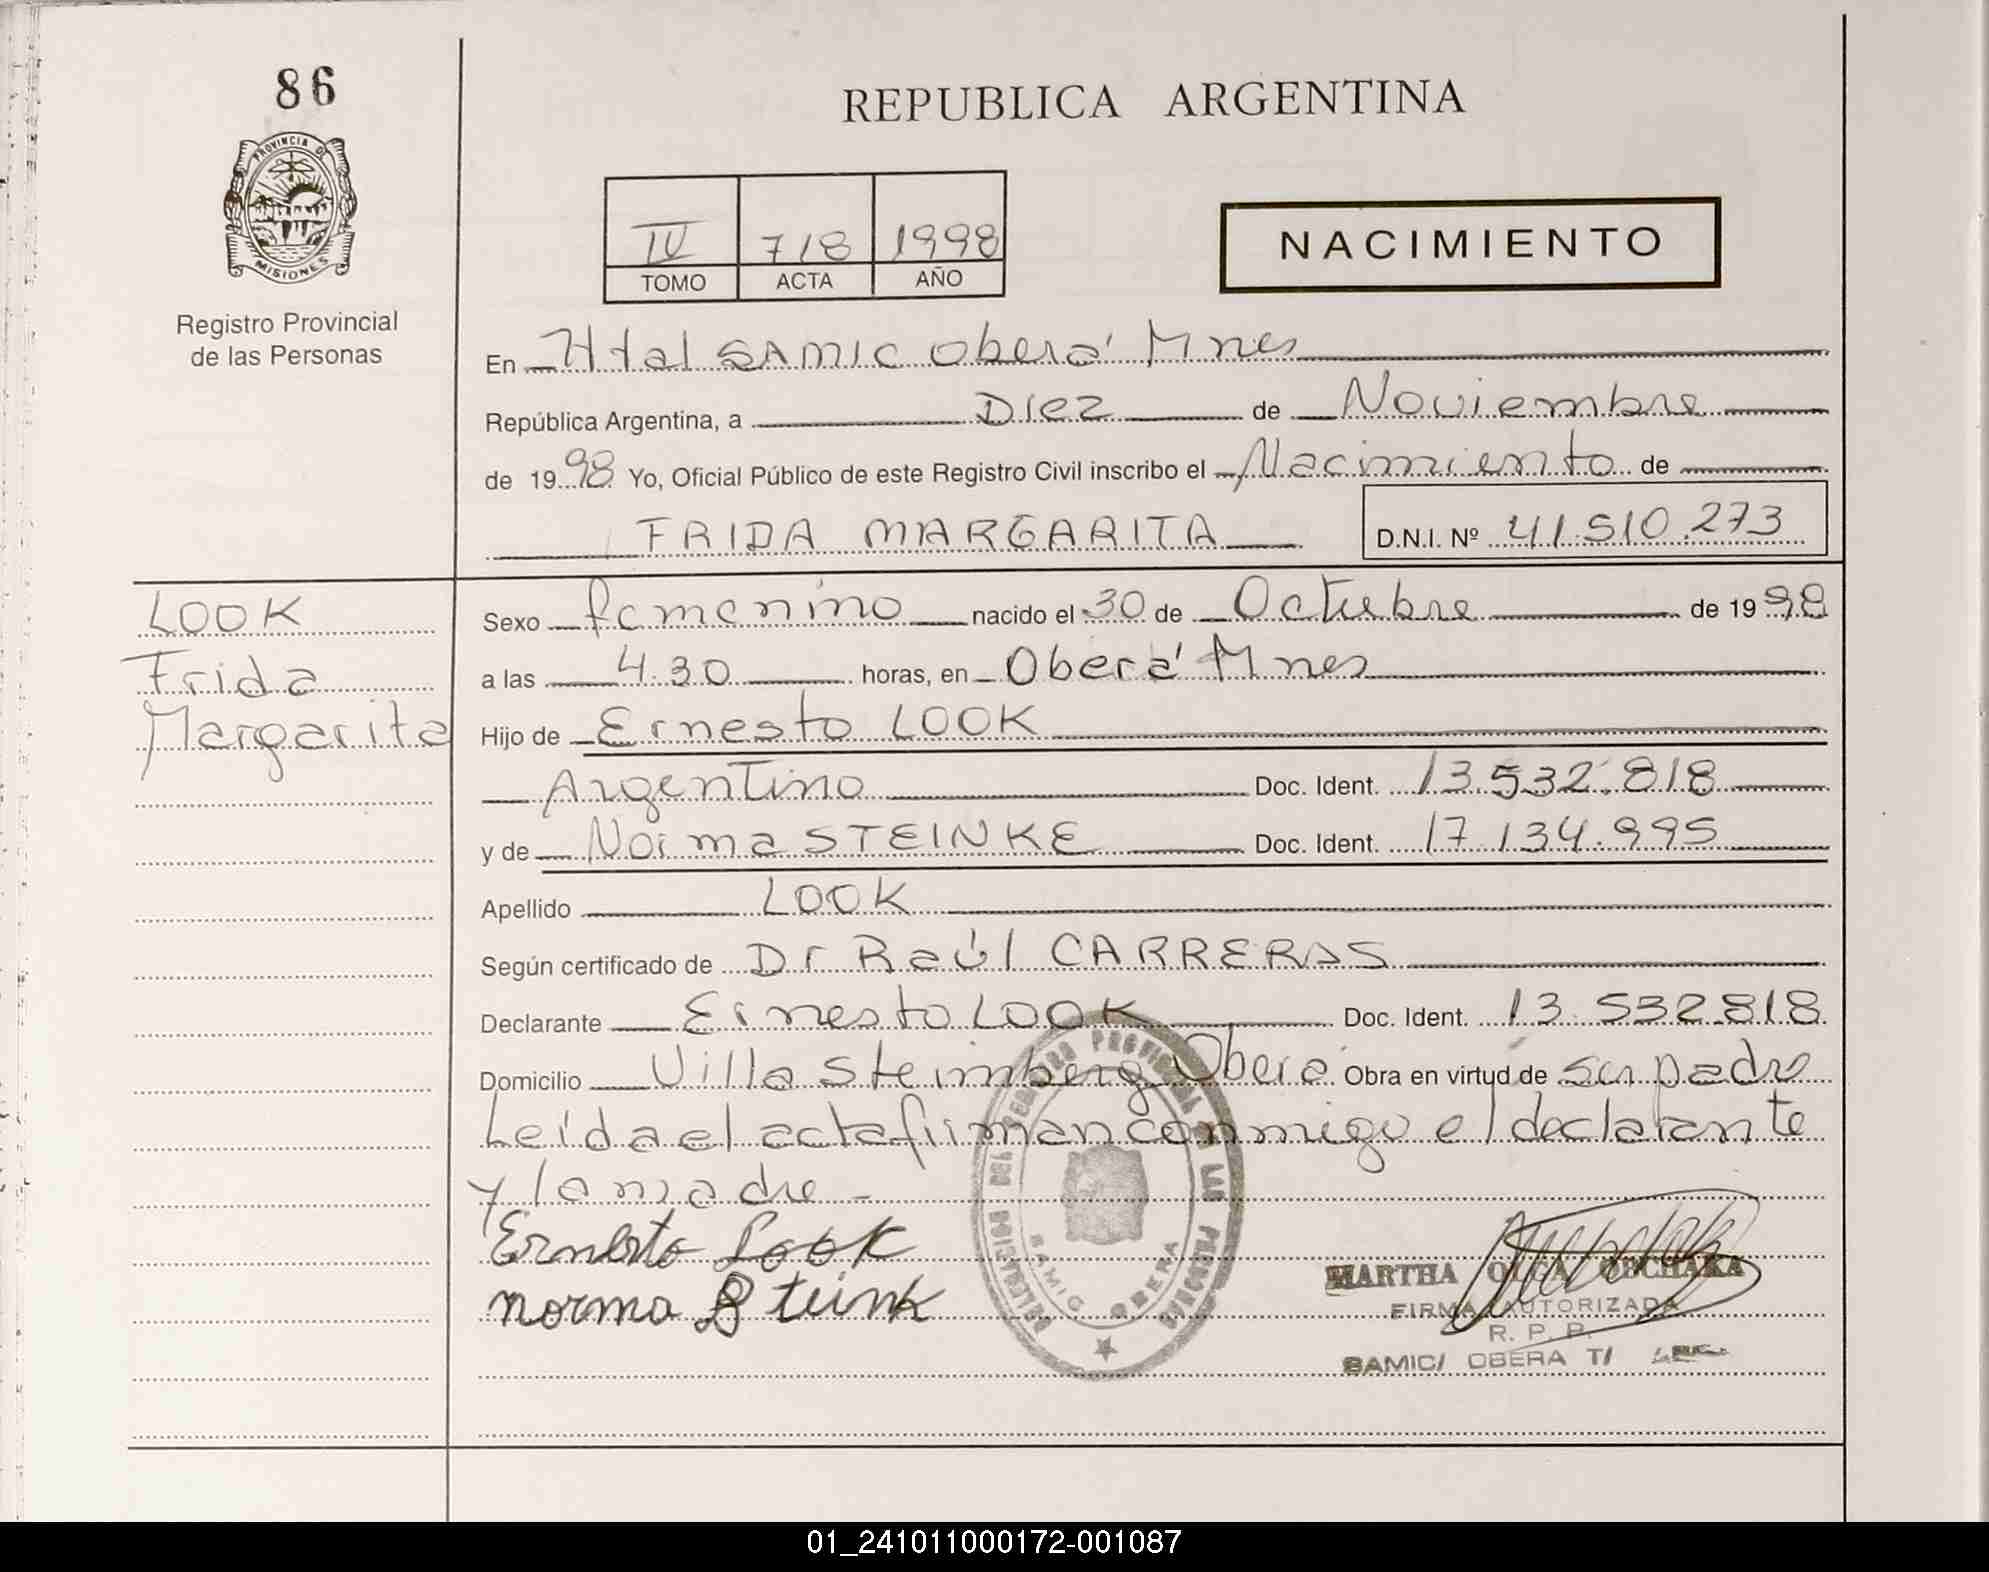 86
PROVINCIA DE
MISIONES
Registro Provincial
de las Personas
REPUBLICA ARGENTINA
IV 718 1998
TOMO ACTA AÑO
NACIMIENTO
En Htal SAMIC Oberá Mnes
República Argentina, a Diez de Noviembre
de 1998 Yo, Oficial Público de este Registro Civil inscribo el Nacimiento de
FRIDA MARGARITA D.N.I. Nº 41.510.273
LOOK
Frida
Margarita
Sexo femenino nacido el 30 de Octubre de 1998
a las 4.30 horas, en Oberá Mnes
Hijo de Ernesto LOOK
Argentino Doc. Ident. 13.532.818
y de Norma STEINKE Doc. Ident. 17.134.995
Apellido LOOK
Según certificado de Dr Raúl CARRERAS
Declarante Ernesto LOOK Doc. Ident. 13.532.818
Domicilio Villa Steimberg Oberá Obra en virtud de su padre
Leída el acta firman conmigo el declarante
y la madre -
Ernesto Look
norma Steink
REGISTRO PROVINCIAL DE LAS PERSONAS
SAMIC OBERA
MARTHA OLGA
FIRMA AUTORIZADA
R. P. P.
SAMIC/ OBERA T/
01_241011000172-001087